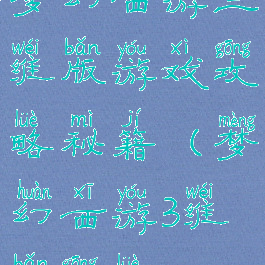 wéi bǎn yóu xì gōng
维版游戏攻
lüè mì jí mèng
略秘籍(梦
huàn xī yóu wéi
幻西游3维
bǎn gōng lüè